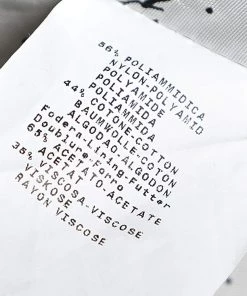 56% POLIAMMIDICA
NYLON-POLYAMID
POLYAMIDE
POLIAMIDA
44% COTONE
BAUMWOLLE-COTTON
ALGODAO-COTON
ALGODON
Fodera-Lining-Futter
Doublure-Forro
65% ACETATO-ACETATE
35% VISCOSA-VISCOSE
VISKOSE
RAYON VISCOSE